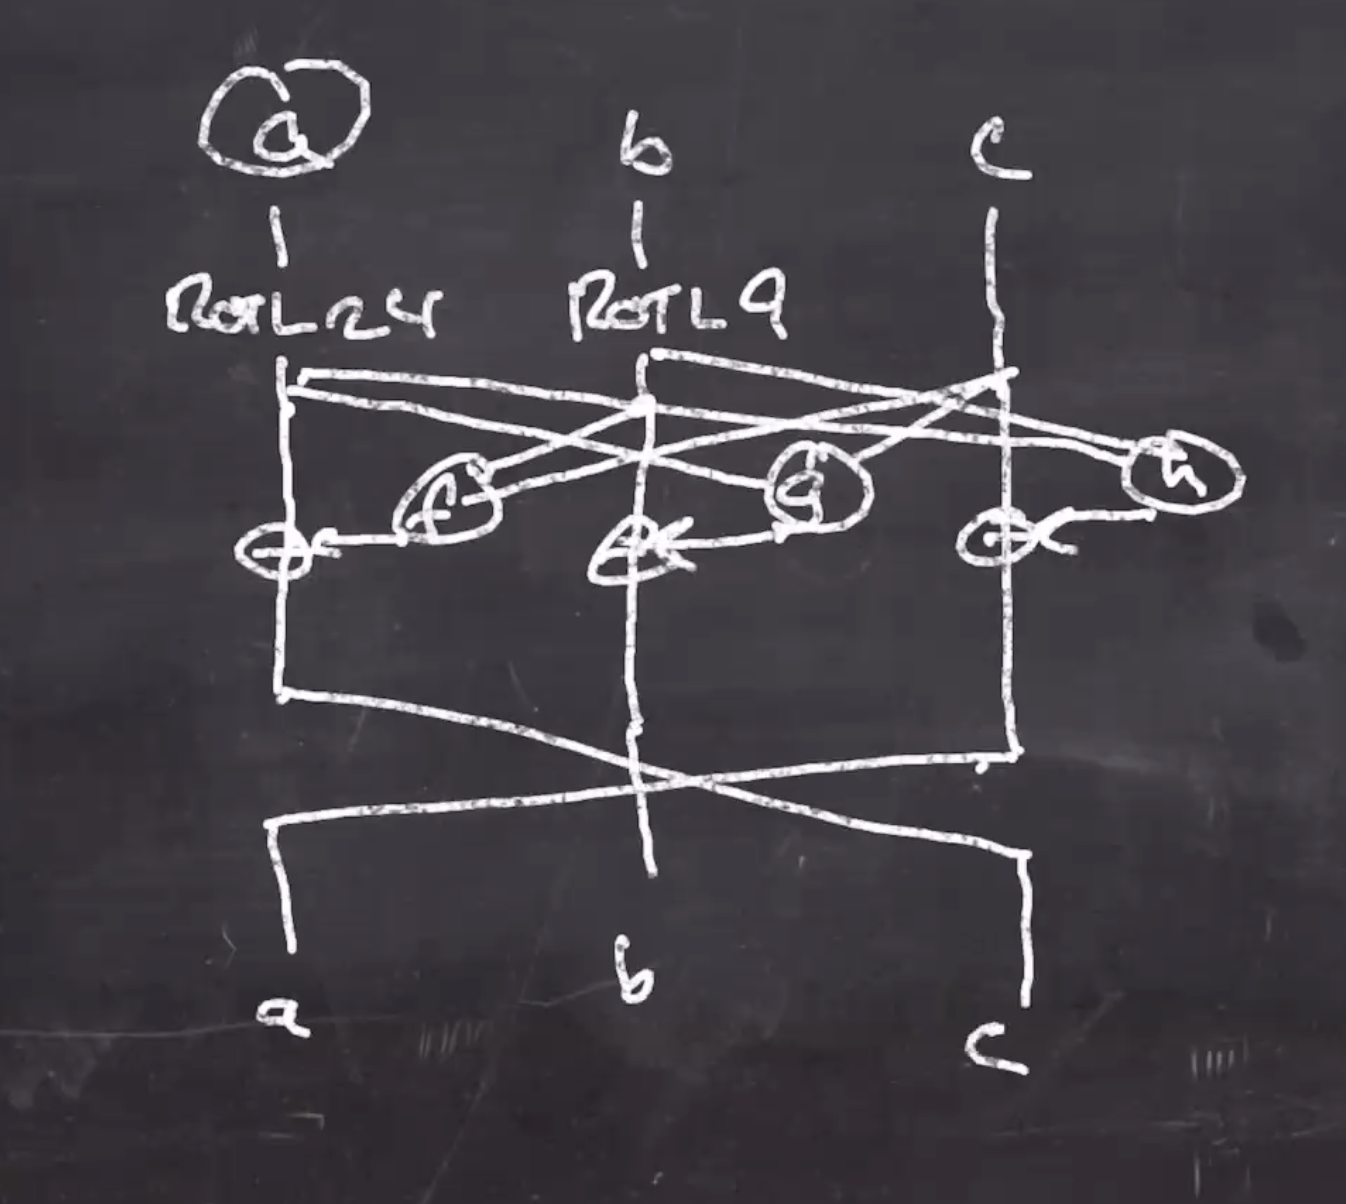 a b c
ROTL24 ROTL9
f g h
a b c